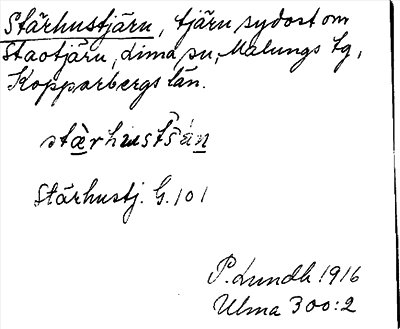 Stärhustjärn, tjärn sydost om
Staotjärn, Lima sn, Malungs tg,
Kopparbergs län.
stærhustšä́n
Stärhustj. G. 101
P. Lundh 1916
Ulma 300:2